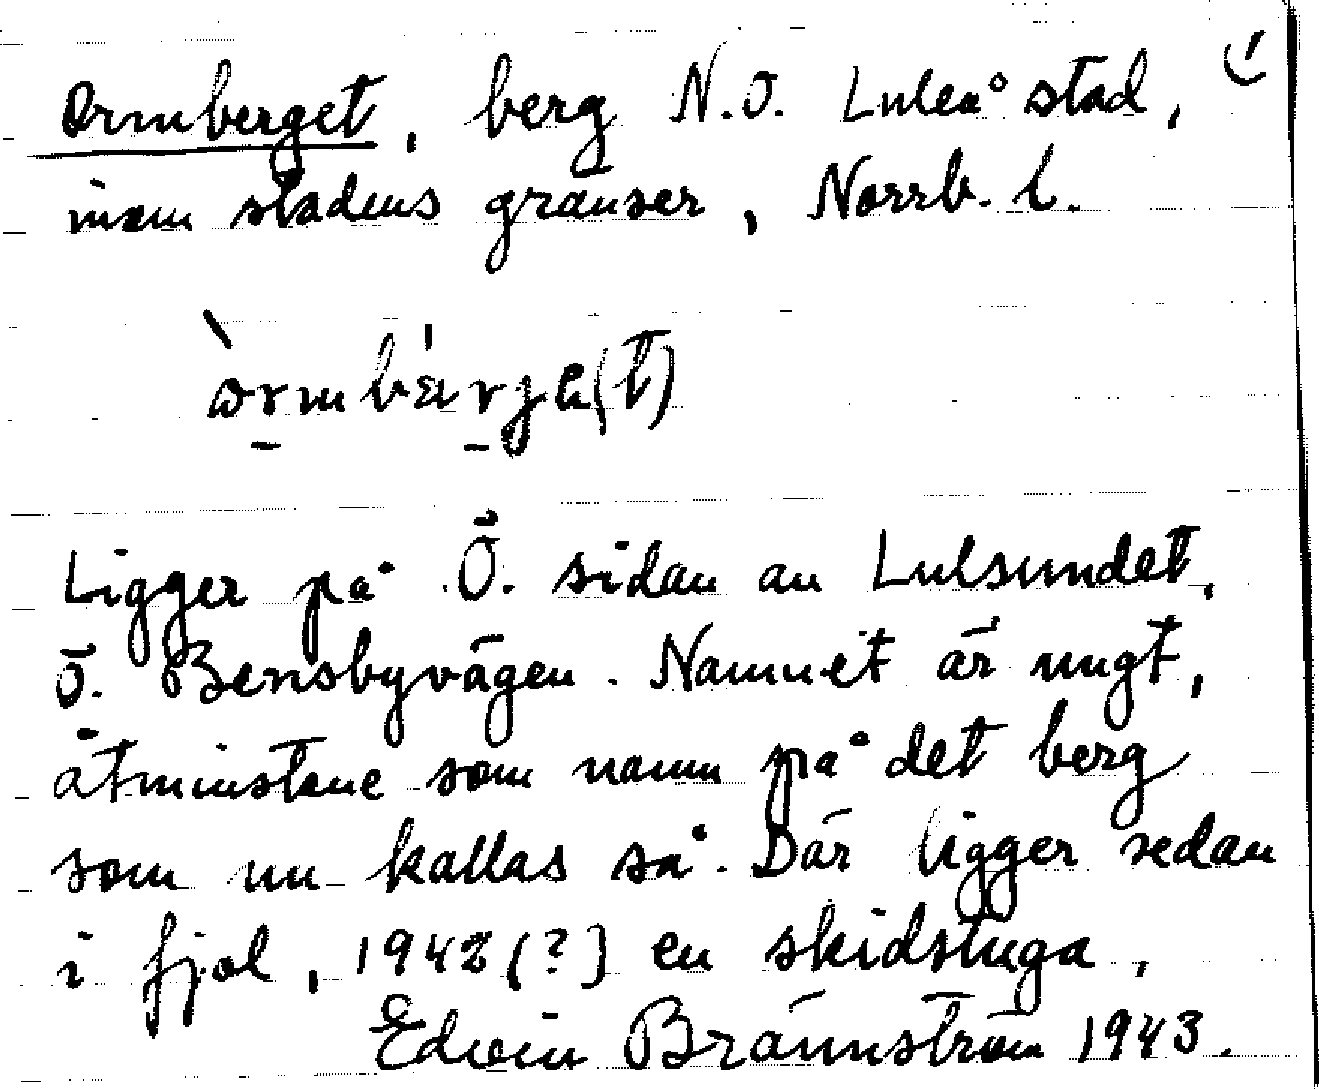 Ormberget, berg N.O. Luleå stad,
inom stadens gränser, Norrb. l.
òrmbä́rje(t)
Ligger på Ö. sidan av Lulsundet,
ö. Bensbyvägen. Namnet är nugt,
åtminstone som namn på det berg
som nu kallas så. Där ligger sedan
i fjol, 1942 (?) en skidstuga,
Edvin Brännström 1943.